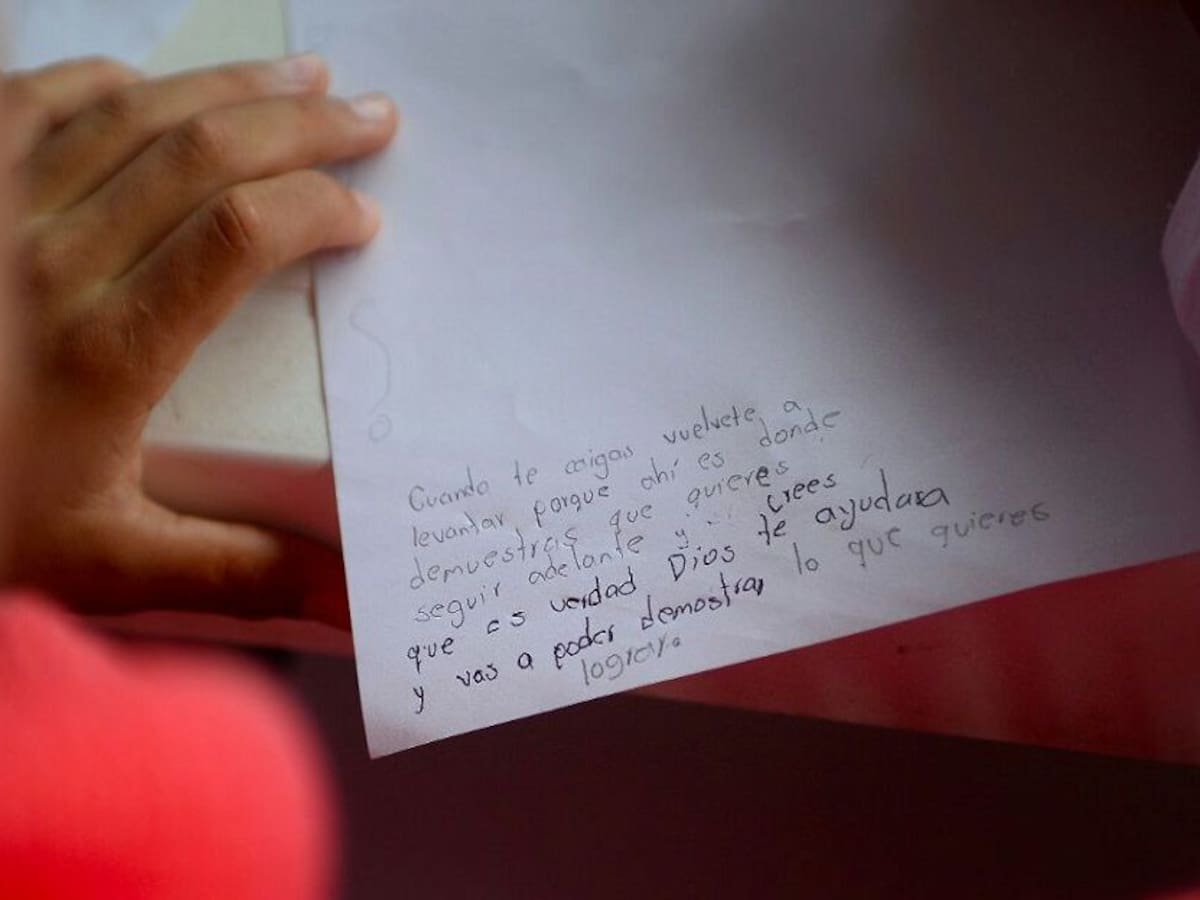 Cuando te caigas vuelvete a
levantar, porque ahí es donde
demuestras que quieres
seguir adelante y si crees
que es verdad Dios te ayudara
y vas a poder demostrar lo que quieres
lograr.